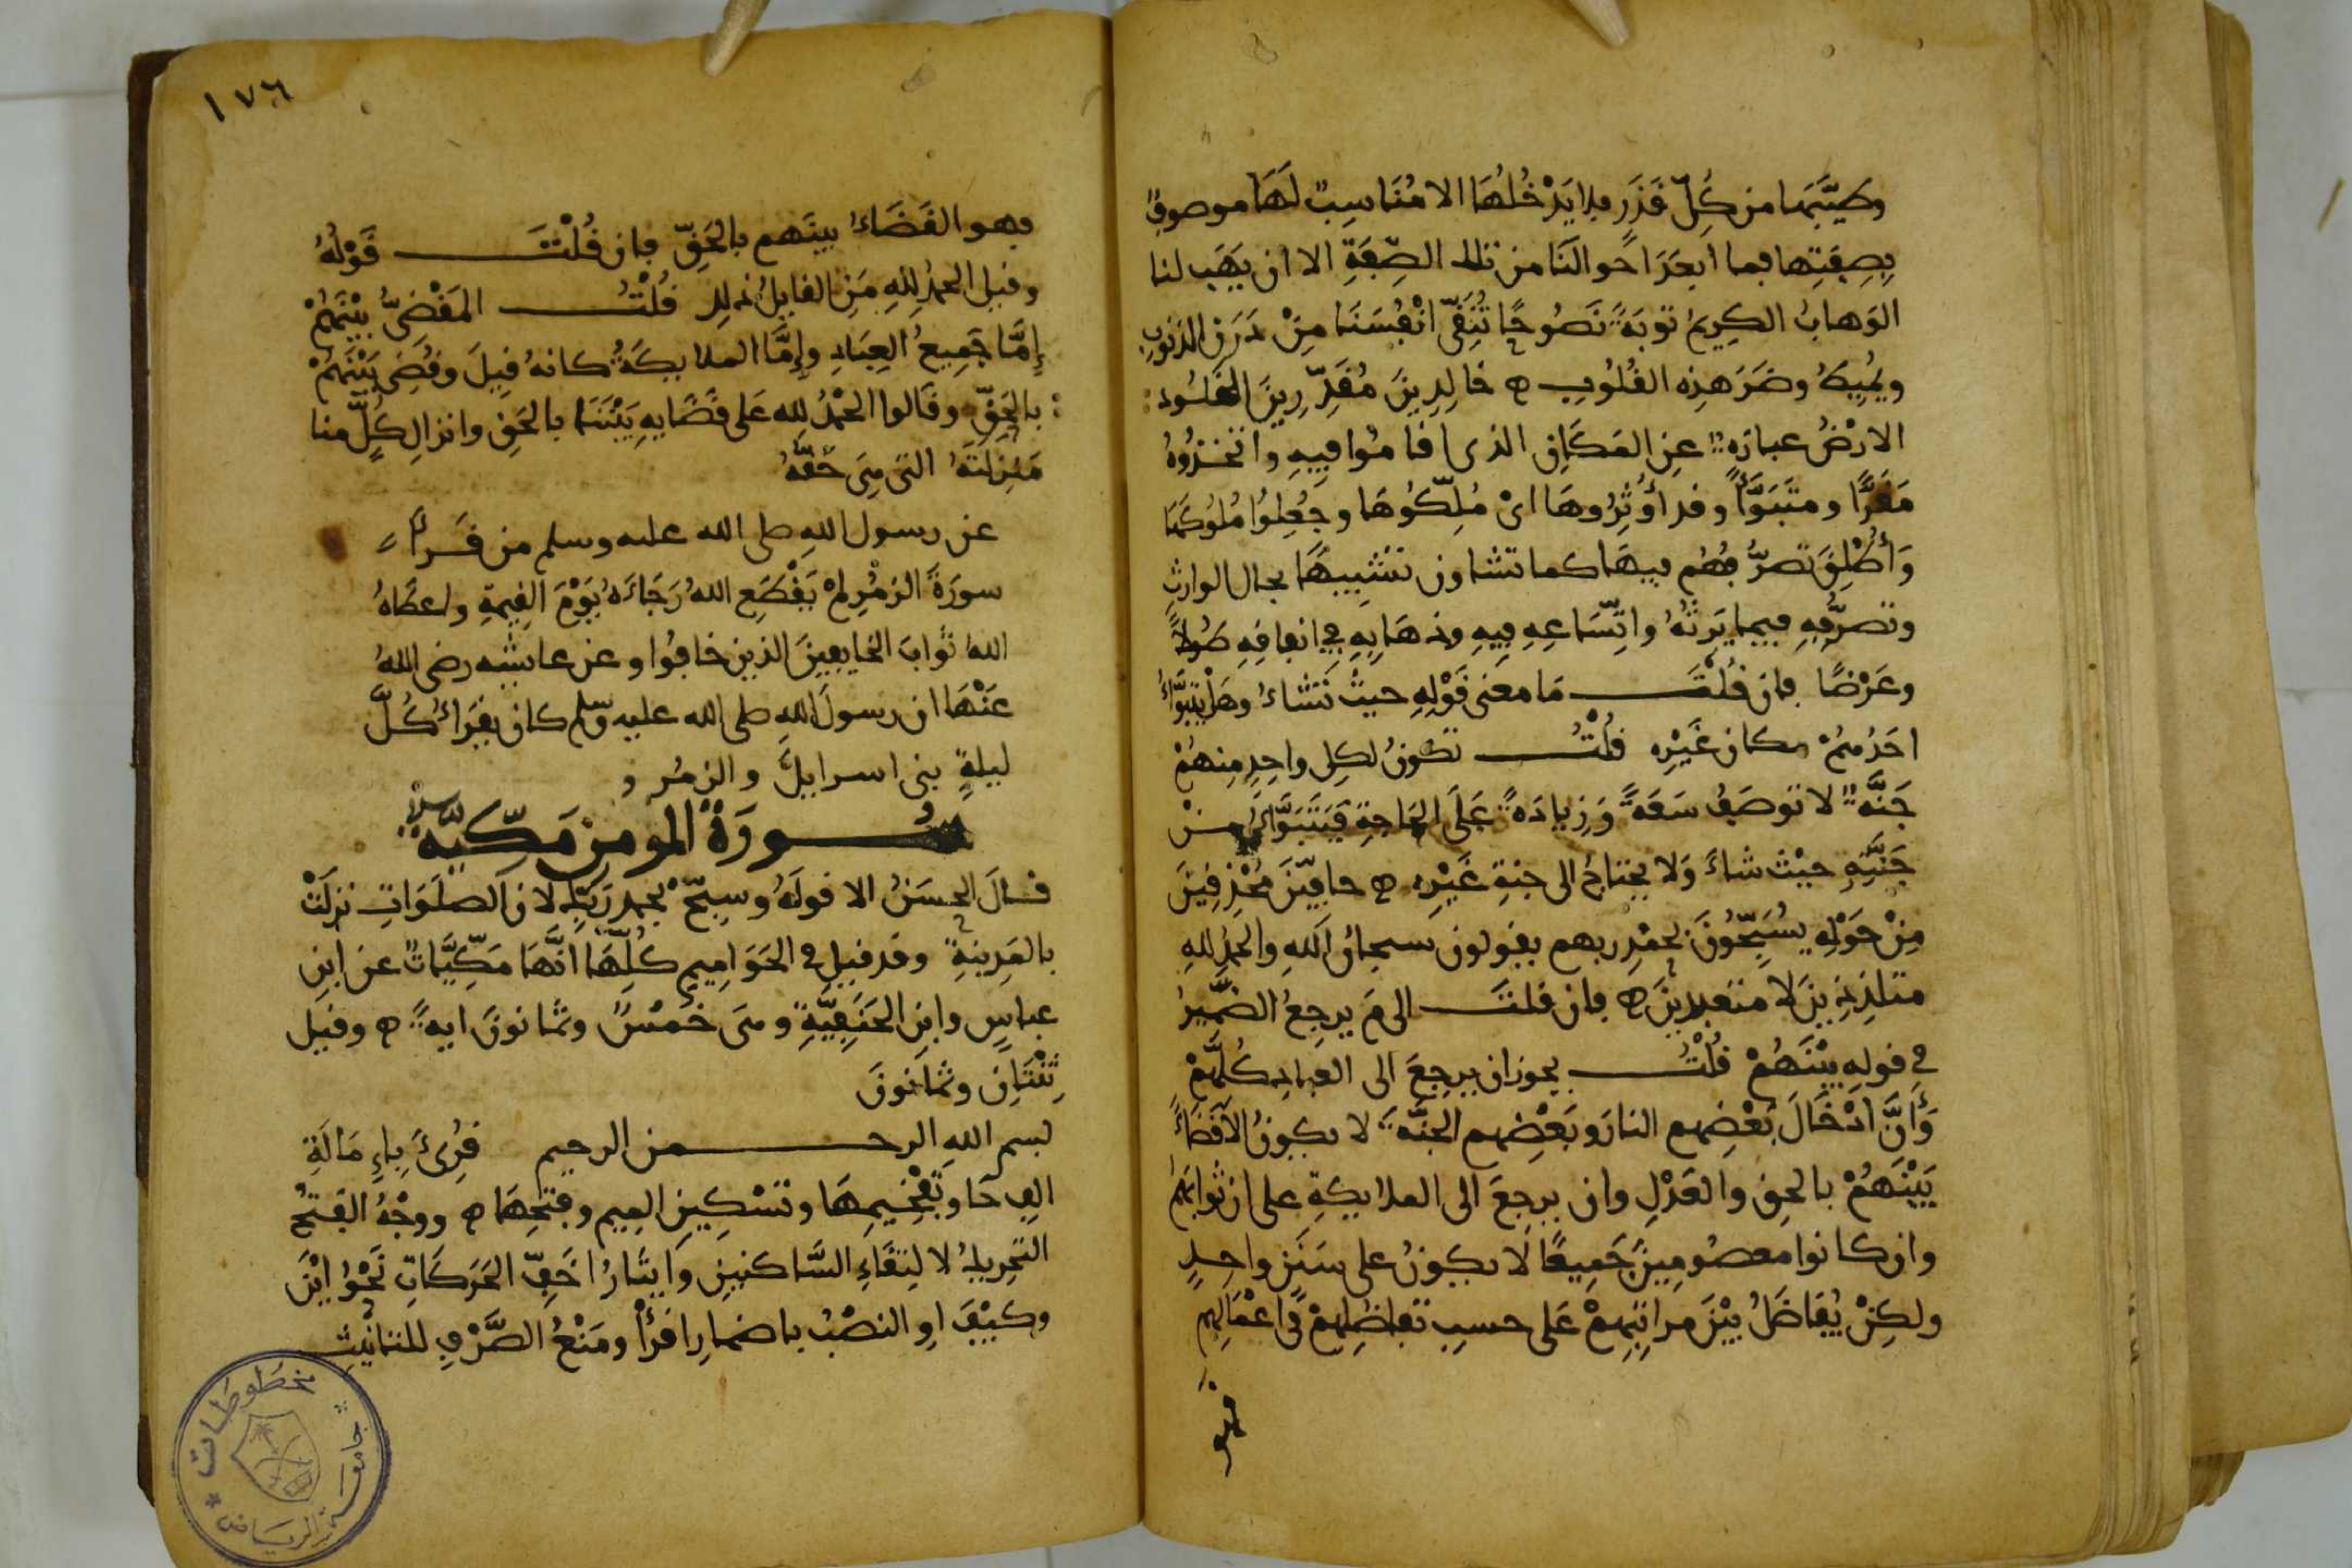 وطيّبَها من كلِّ قَذَرٍ فلا يَدْخُلُهَا الا مُنَاسِبٌ لَهَا موصوفٌ
بِصِفَتِها فما ابعَدَ احوالَنَا من تلك الصِّفَةِ الا ان يَهَب لنا
الوَهابُ الكريمُ توبَةً نَصُوحًا تُنَقِّى انْفُسَنَا مِنْ دَرَنِ الذنوبِ
ويُمِيطُ وضَرَ هذه القُلُوبِ خالِدِينَ مُقَدِّرِينَ الخُلُود :
الارْضُ عبارَةٌ عن المَكَانِ الذى اقامُوا فِيهِ واتخَذُوهُ
مَقَرًّا ومتَبَوَّأً وقد أُوْرِثُوهَا اىْ مُلِّكُوهَا وجُعِلُوا مُلُوكَهَا
وَأُطْلِقَ تصرُّفُهُم فيهَا كما تشاون تَشْبِيهًا بحال الوارثِ
وتصرُّفِهِ فيما يَرِثُهُ واتِّسَاعِهِ فِيهِ وذهَابِهِ فى انفاقِهِ طُولًا
وعَرْضًا فان قُلْتَ مَا معنى قَوْلِهِ حيثُ نَشَاءُ وهَلْ يَتَبَوَّاءُ
احَدُهُمْ مكان غَيْرِه قُلْتُ تكونُ لكِل واحِدٍ مِنهُمْ
جَنَّةٌ لا توصَفُ سَعَةً وَزِيادَةً عَلَى الحَاجةِ فَيَتَبَوَّاءُ مِنْ
جَنَّتِهِ حيْثُ شاءَ وَلا يحتاجُ الى جنةِ غَيْرِه حافِّينَ مُحْدِقِينَ
مِنْ حَوْلِهِ يُسَبِّحُونَ بحَمْدِ ربهم يقولون سبحان اللهِ والحمدُ للهِ
متلذِذِينَ لا متعبدِينَ فان قلتَ الى مَ يرجِعُ الضَّمِيرُ
فى قولِهِ بيْنَهُمْ قُلْتُ يجوز ان يرجِعَ الى العبادِ كُلِّهِمْ
وَأَنَّ ادْخَالَ بَعْضِهم النارَ وبَعْضِهم الجنَّةَ لا يكونُ الا قَضَاءً
بَيْنَهُمْ بالحقِ والعَدْلِ وان يرجِعَ الى الملايكةِ على ان ثوابَهُم
وان كانوا معصُومِينَ جَمِيعًا لا يكونُ على سَنَنٍ واحِدٍ
ولكِنْ يُفَاضَلُ بيْنَ مراتِبِهِمْ عَلى حسبِ تفاضُلِهِمْ فى اعْمَالِهِم
فهو
١٧٦
فهو القَضَاءُ بينَهم بالحَقِّ فان قُلْتَ قَوْلُهُ
وقيل الحمدُ لِلهِ مَنِ القايلُ ذلِك قُلْتُ المَقْضىُّ بيْنَهُمْ
إِمَّا جَمِيعُ العِبَادِ وإِمَّا الملايكَةُ كانهُ قِيلَ وقُضِى بَيْنَهُمْ
: بالحَقِّ وقَالوا الحَمْدُ لله عَلى قَضَايِهِ بَيْنَنَا بالحَقِ وانزالِ كُلٍّ منا
مَنْزِلَتَهُ التى هِىَ حَقُّهُ
عن رسول اللهِ صلى الله عليه وسلم من قَرأَ
سورَةَ الزمُرِ لمْ يَقْطَعِ اللهُ رَجَاءَهُ يَوْمَ القِيمةِ واعطَاهُ
اللهُ ثوَابَ الخايفِينَ الذين خافُوا وعن عايشه رضى اللهُ
عَنْهَا ان رسولَ اللهِ صلى الله عليه وسلم كان يقرَاءُ كُلَّ
ليلةٍ بنى اسرايلَ والزمُر
سُورَةُ المومن مَكِّيَّةٌ
قالَ الحسَنُ الا قولَهُ وسبِّحْ بحمدِ رَبِّك لان الصلَوَاتِ نزلَتْ
بالمَدِينةِ وقد قيل فى الحَوَامِيمِ كُلِّهَا انَّهَا مَكِّيَّاتٌ عن ابنِ
عباسٍ وابنِ الحَنَفِيَّةِ وهى خَمْسٌ وثمانونَ ايةً وقيل
ثِنْتَانِ وثمَانونَ
بسم اللهِ الرحمن الرحيم قُرِئَ بِاءِمَالَةِ
الِف حَا وتَفْخِيمِهَا وتسْكِينِ الميم وفتحِهَا ووجْهُ الفَتحُ
التحريكُ لالتِقَاءِ السَّاكنيْنِ وَايثَارُ اخَفِّ الحَرَكَاتِ نَحْوُ ايْنَ
وكيْفَ اوِ النصْبُ باضمارِ اقرَأْ ومَنْعُ الصَّرْفِ للتانيْثِ
مخطوطات
جامعة الرياض